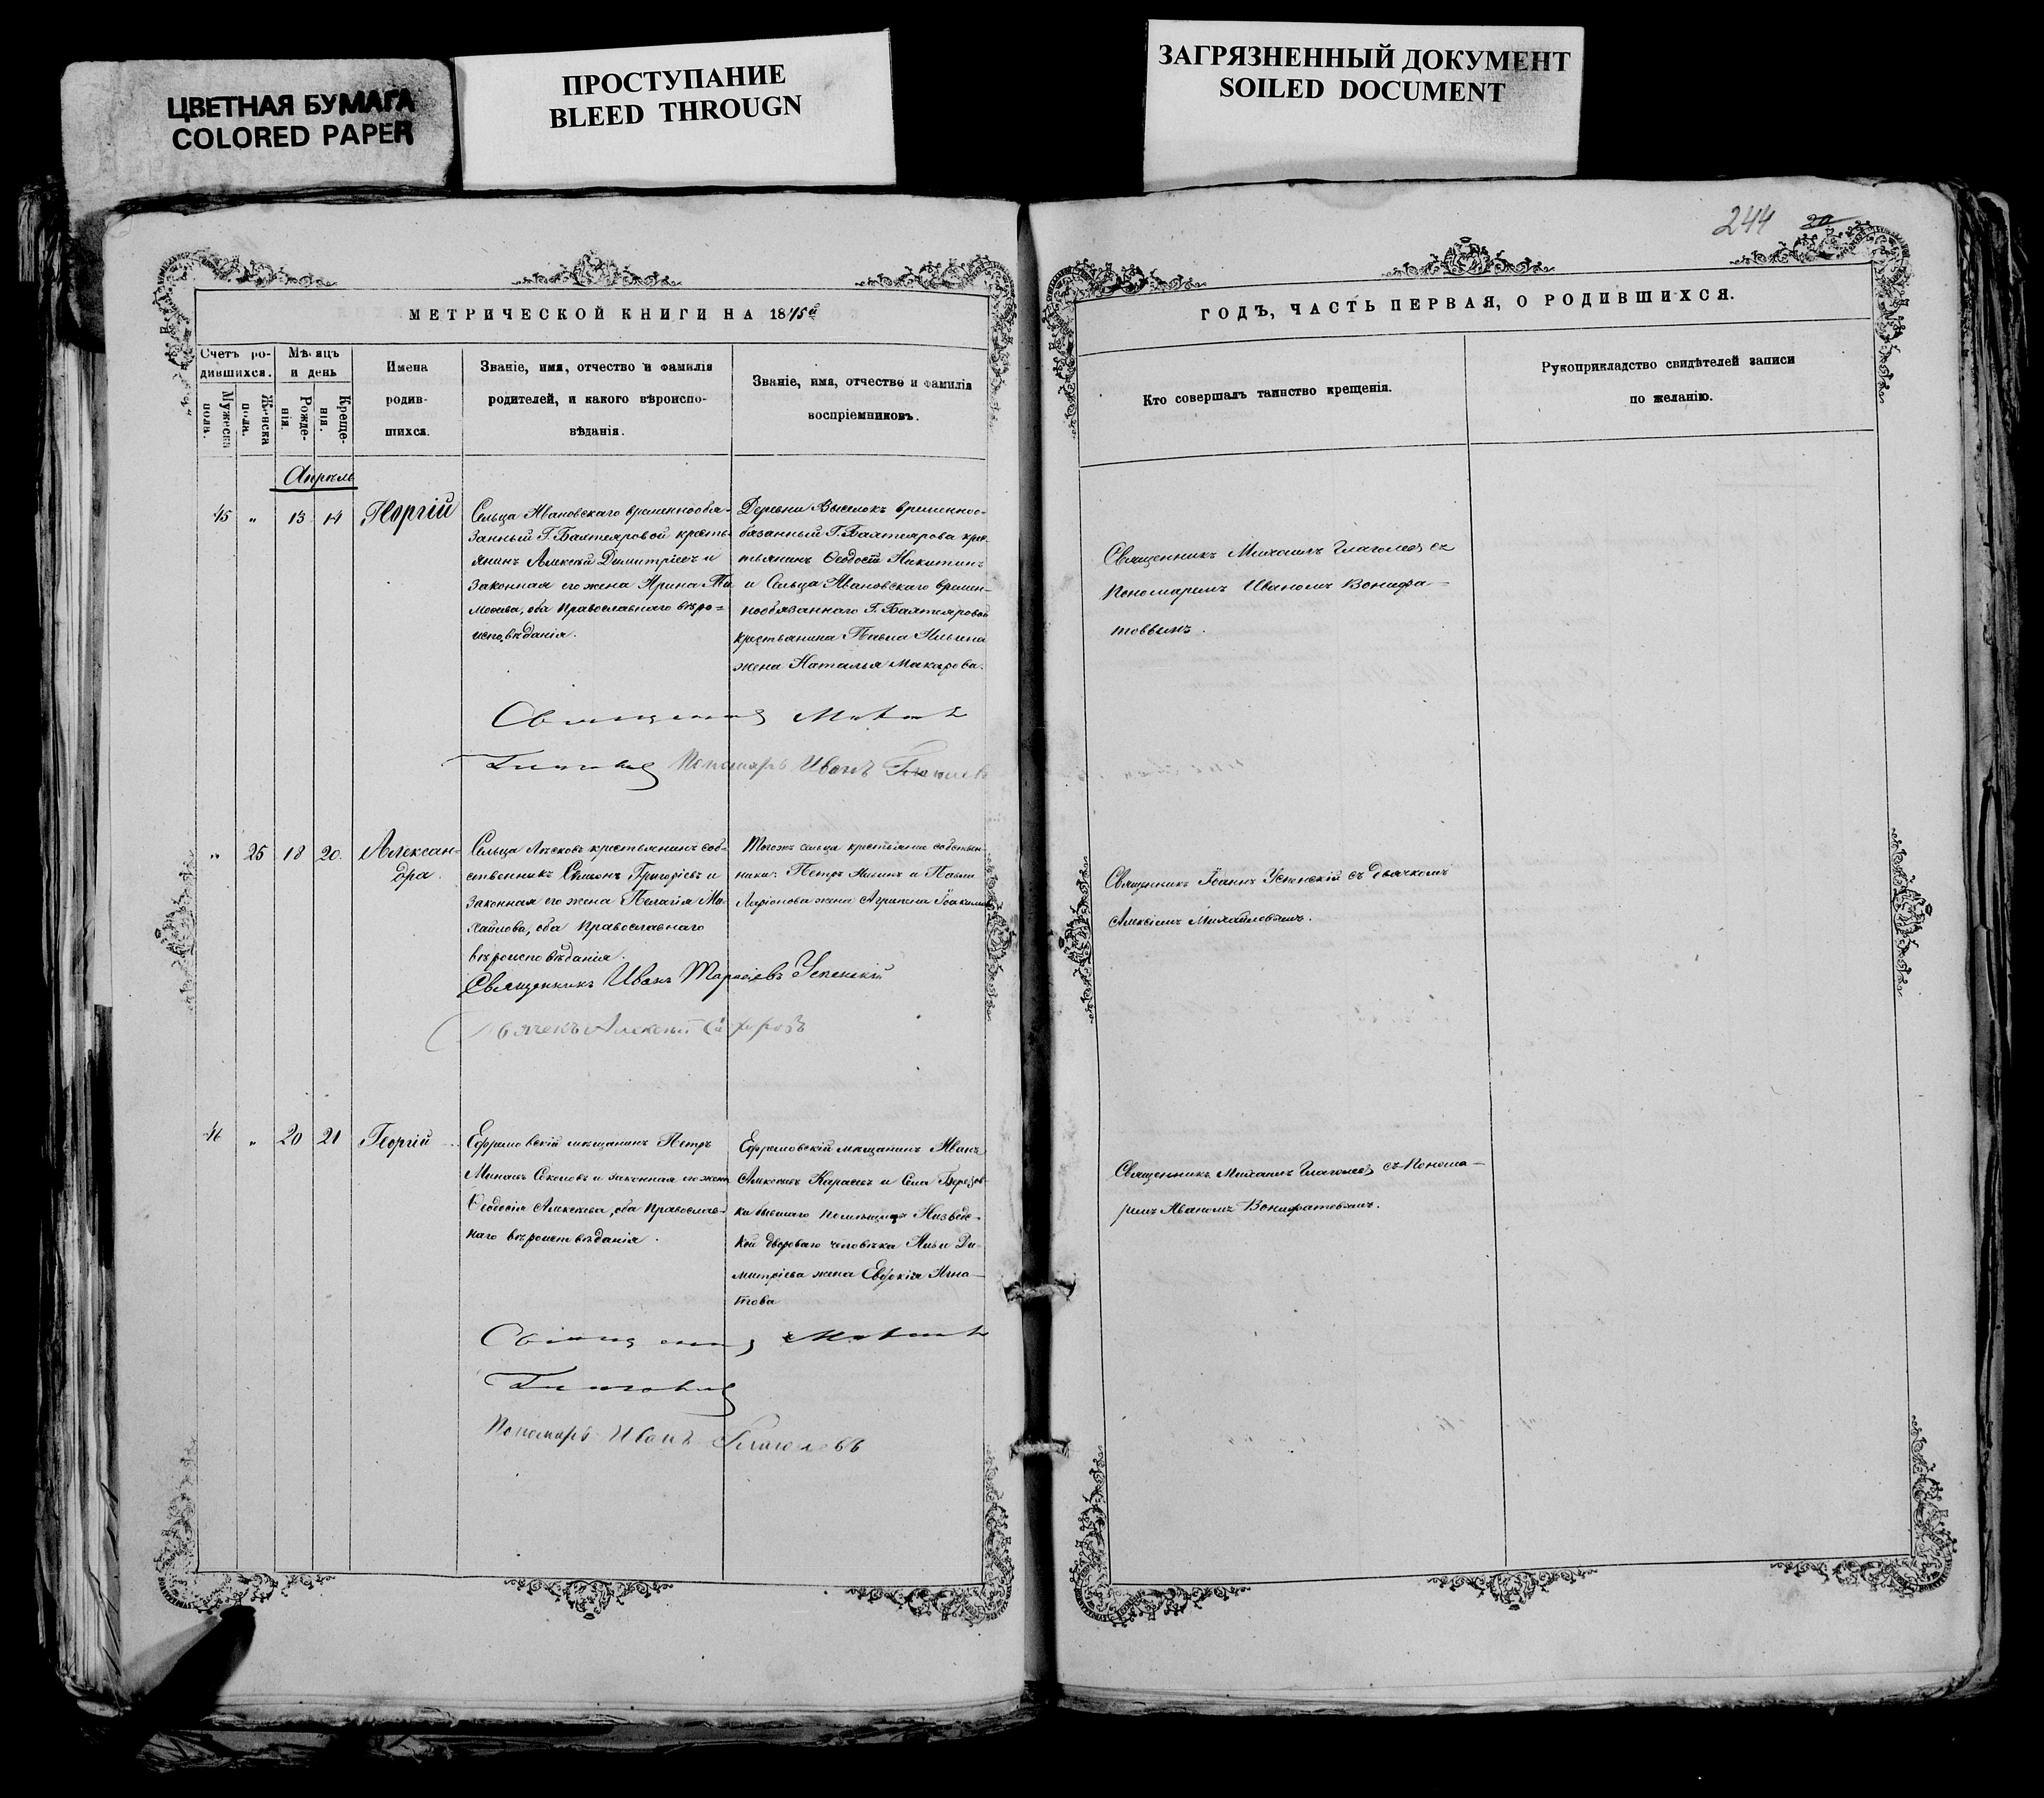 ЦВЕТНАЯ БУМАГА
COLORED PAPER
ПРОСТУПАНИЕ
BLEED THROUGN
ЗАГРЯЗНЕННЫЙ ДОКУМЕНТ
SOILED DOCUMENT
244 20
МЕТРИЧЕСКОЙ КНИГИ НА 1875й
Счетъ ро-
дившихся.
Мужеска пола.
Женска пола.
Мѣсяцъ
и день
Рожде-
нія.
Креще-
нія.
Имена
родив-
шихся.
Званіе, имя, отчество и фамилія
родителей, и какого вѣроиспо-
вѣданія.
Званіе, имя, отчество и фамилія
воспріемниковъ.
ГОДЪ, ЧАСТЬ ПЕРВАЯ, О РОДИВШИХСЯ.
Кто совершалъ таинство крещенія.
Рукоприкладство свидѣтелей записи
по желанію.
Апрѣль
45 " 13 14 Георгій
Сельца Ивановскаго временнообя-
занный Г. Бахтеяровой кресть-
янинъ Алексѣй Димитріевъ и
законная его жена Ирина Ти-
моѳеева, оба Православнаго вѣро=
исповѣданія.
Деревни Выселокъ временно-
обязанный Г. Бахтеярова крес-
тьянинъ Ѳеодосій Никитинъ
и Сельца Ивановскаго времен-
нообязаннаго Г. Бахтеяровой
крестьянина Павла Ильина
жена Наталья Макарова.
Священникъ Михаилъ Глаголевъ съ
Пономаремъ Иваномъ Вонифа-
товымъ.
Священникъ Михаилъ
Глаголевъ Пономарь Иванъ Глаголевъ
" 25 18 20. Алексан=
дра.
Сельца Лѣсковъ крестьянинъ соб-
ственникъ Симеонъ Григоріевъ и
законная его жена Пелагія Ми-
хайлова, оба Православнаго
вѣроисповѣданія.
Тогожъ сельца крестьяне собствен-
ники: Петръ Ильинъ и Павла
Ларіонова жена Агрипена Іоакимова
Священникъ Іоаннъ Успенскій съ дьячкомъ
Алексіемъ Михайловымъ.
Священникъ Иванъ Тарасіевъ Успенскій
Дьячекъ Алексѣй
46 " 20 21 Георгій
Ефремовскій мѣщанинъ Петръ
Минаевъ Соколовъ и законная его жена
Ѳеодосія Алексѣева, оба Православ-
наго вѣроисповѣданія.
Ефремовскій мѣщанинъ Иванъ
Карасевъ и Села Березов-
ки бывшаго помѣщицы
двороваго человѣка Ильи Ди-
митріева жена Евдокія Игна-
това
Священникъ Михаилъ Глаголевъ съ Понома-
ремъ Иваномъ Вонифатовымъ.
Священникъ Михаилъ
Глаголевъ
Пономарь Иванъ Глаголевъ